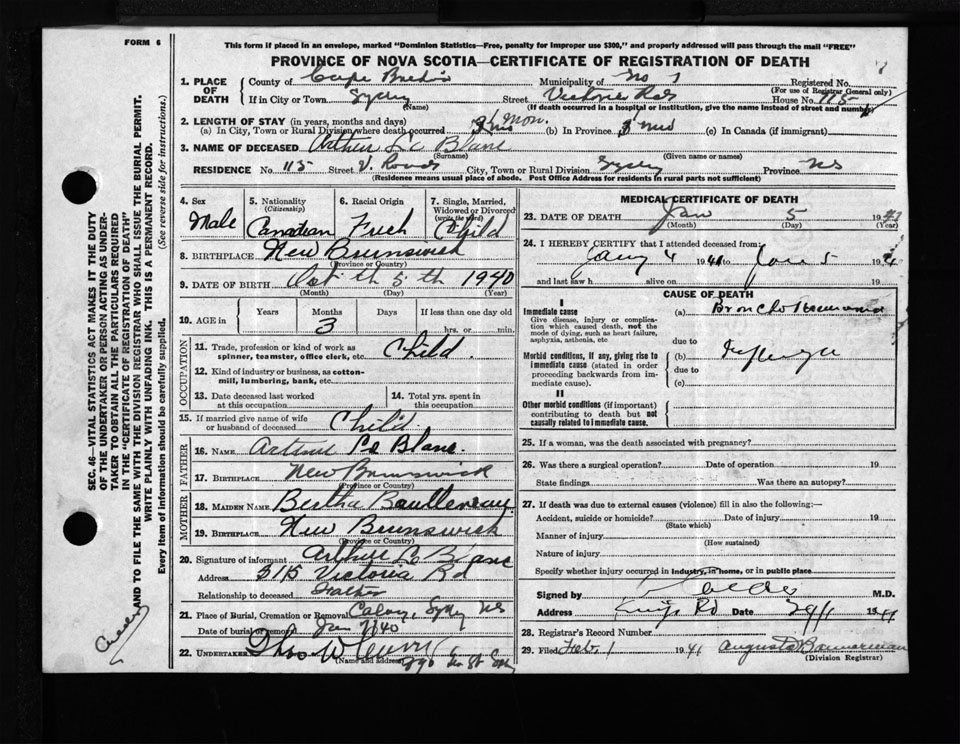 FORM 6
This form if placed in an envelope, marked "Dominion Statistics—Free, penalty for improper use $300," and properly addressed will pass through the mail "FREE"
PROVINCE OF NOVA SCOTIA—CERTIFICATE OF REGISTRATION OF DEATH
1. PLACE OF DEATH
County of Cape Breton Municipality of No 1 Registered No.
(For use of Registrar General only)
If in City or Town Sydney Street Victoria Rd House No. 115
(Name) (If death occurred in a hospital or institution, give the name instead of street and number)
2. LENGTH OF STAY (in years, months and days)
(a) In City, Town or Rural Division where death occurred 3 Mon. (b) In Province 3 mo (c) In Canada (if immigrant)
3. NAME OF DECEASED Arthur Le Blanc
(Surname) (Given name or names)
RESIDENCE No. 115 Street V. Road City, Town or Rural Division Sydney Province NS
(Residence means usual place of abode. Post Office Address for residents in rural parts not sufficient)
4. Sex Male
5. Nationality (Citizenship) Canadian
6. Racial Origin Frech
7. Single, Married, Widowed or Divorced (write the word) Child
8. BIRTHPLACE New Brunswick
(Province or Country)
9. DATE OF BIRTH Oct th 5 th 1940
(Month) (Day) (Year)
10. AGE in Years Months 3 Days If less than one day hrs. or min.
OCCUPATION
11. Trade, profession or kind of work as spinner, teamster, office clerk, etc. Child.
12. Kind of industry or business, as cotton-mill, lumbering, bank, etc.
13. Date deceased last worked at this occupation
14. Total yrs. spent in this occupation
15. If married give name of wife or husband of deceased Child.
FATHER
16. NAME Arthur Le Blanc.
17. BIRTHPLACE New Brunswick
(Province or Country)
MOTHER
18. MAIDEN NAME Bertha
19. BIRTHPLACE New Brunswick
(Province or Country)
20. Signature of informant Arthur Le Blanc
Address 115 Victoria Rd
Relationship to deceased Father
21. Place of Burial, Cremation or Removal Calvary, Sydney NS
Date of burial or removal Jan 7/40
22. UNDERTAKER Thos W Curry
(Name and address)
MEDICAL CERTIFICATE OF DEATH
23. DATE OF DEATH Jan 5 1941
(Month) (Day) (Year)
24. I HEREBY CERTIFY that I attended deceased from:
Jany 4 1941 to Jan 5 194
and last saw h alive on 19
CAUSE OF DEATH
I
Immediate cause
Give disease, injury or complication which caused death, not the mode of dying, such as heart failure, asphyxia, asthenia, etc
(a) Broncho Pneumonia
due to
Morbid conditions, if any, giving rise to immediate cause (stated in order proceeding backwards from immediate cause).
(b)
due to
(c)
II
Other morbid conditions (if important) contributing to death but not causally related to immediate cause.
25. If a woman, was the death associated with pregnancy?
26. Was there a surgical operation? Date of operation 19
State findings Was there an autopsy?
27. If death was due to external causes (violence) fill in also the following:—
Accident, suicide or homicide? Date of injury 19
(State which)
Manner of injury
(How sustained)
Nature of injury
Specify whether injury occurred in industry, in home, or in public place
Signed by M.D.
Address Kings Rd Date 29/1 1941
28. Registrar's Record Number
29. Filed Feb. 1 1941 Augusta Bannerman
(Division Registrar)
SEC. 46—VITAL STATISTICS ACT MAKES IT THE DUTY
OF THE UNDERTAKER OR PERSON ACTING AS UNDER-
TAKER TO OBTAIN ALL THE PARTICULARS REQUIRED
IN THE "CERTIFICATE OF REGISTRATION OF DEATH"
AND TO FILE THE SAME WITH THE DIVISION REGISTRAR WHO SHALL ISSUE THE BURIAL PERMIT.
WRITE PLAINLY WITH UNFADING INK. THIS IS A PERMANENT RECORD.
Every item of information should be carefully supplied. (See reverse side for instructions.)